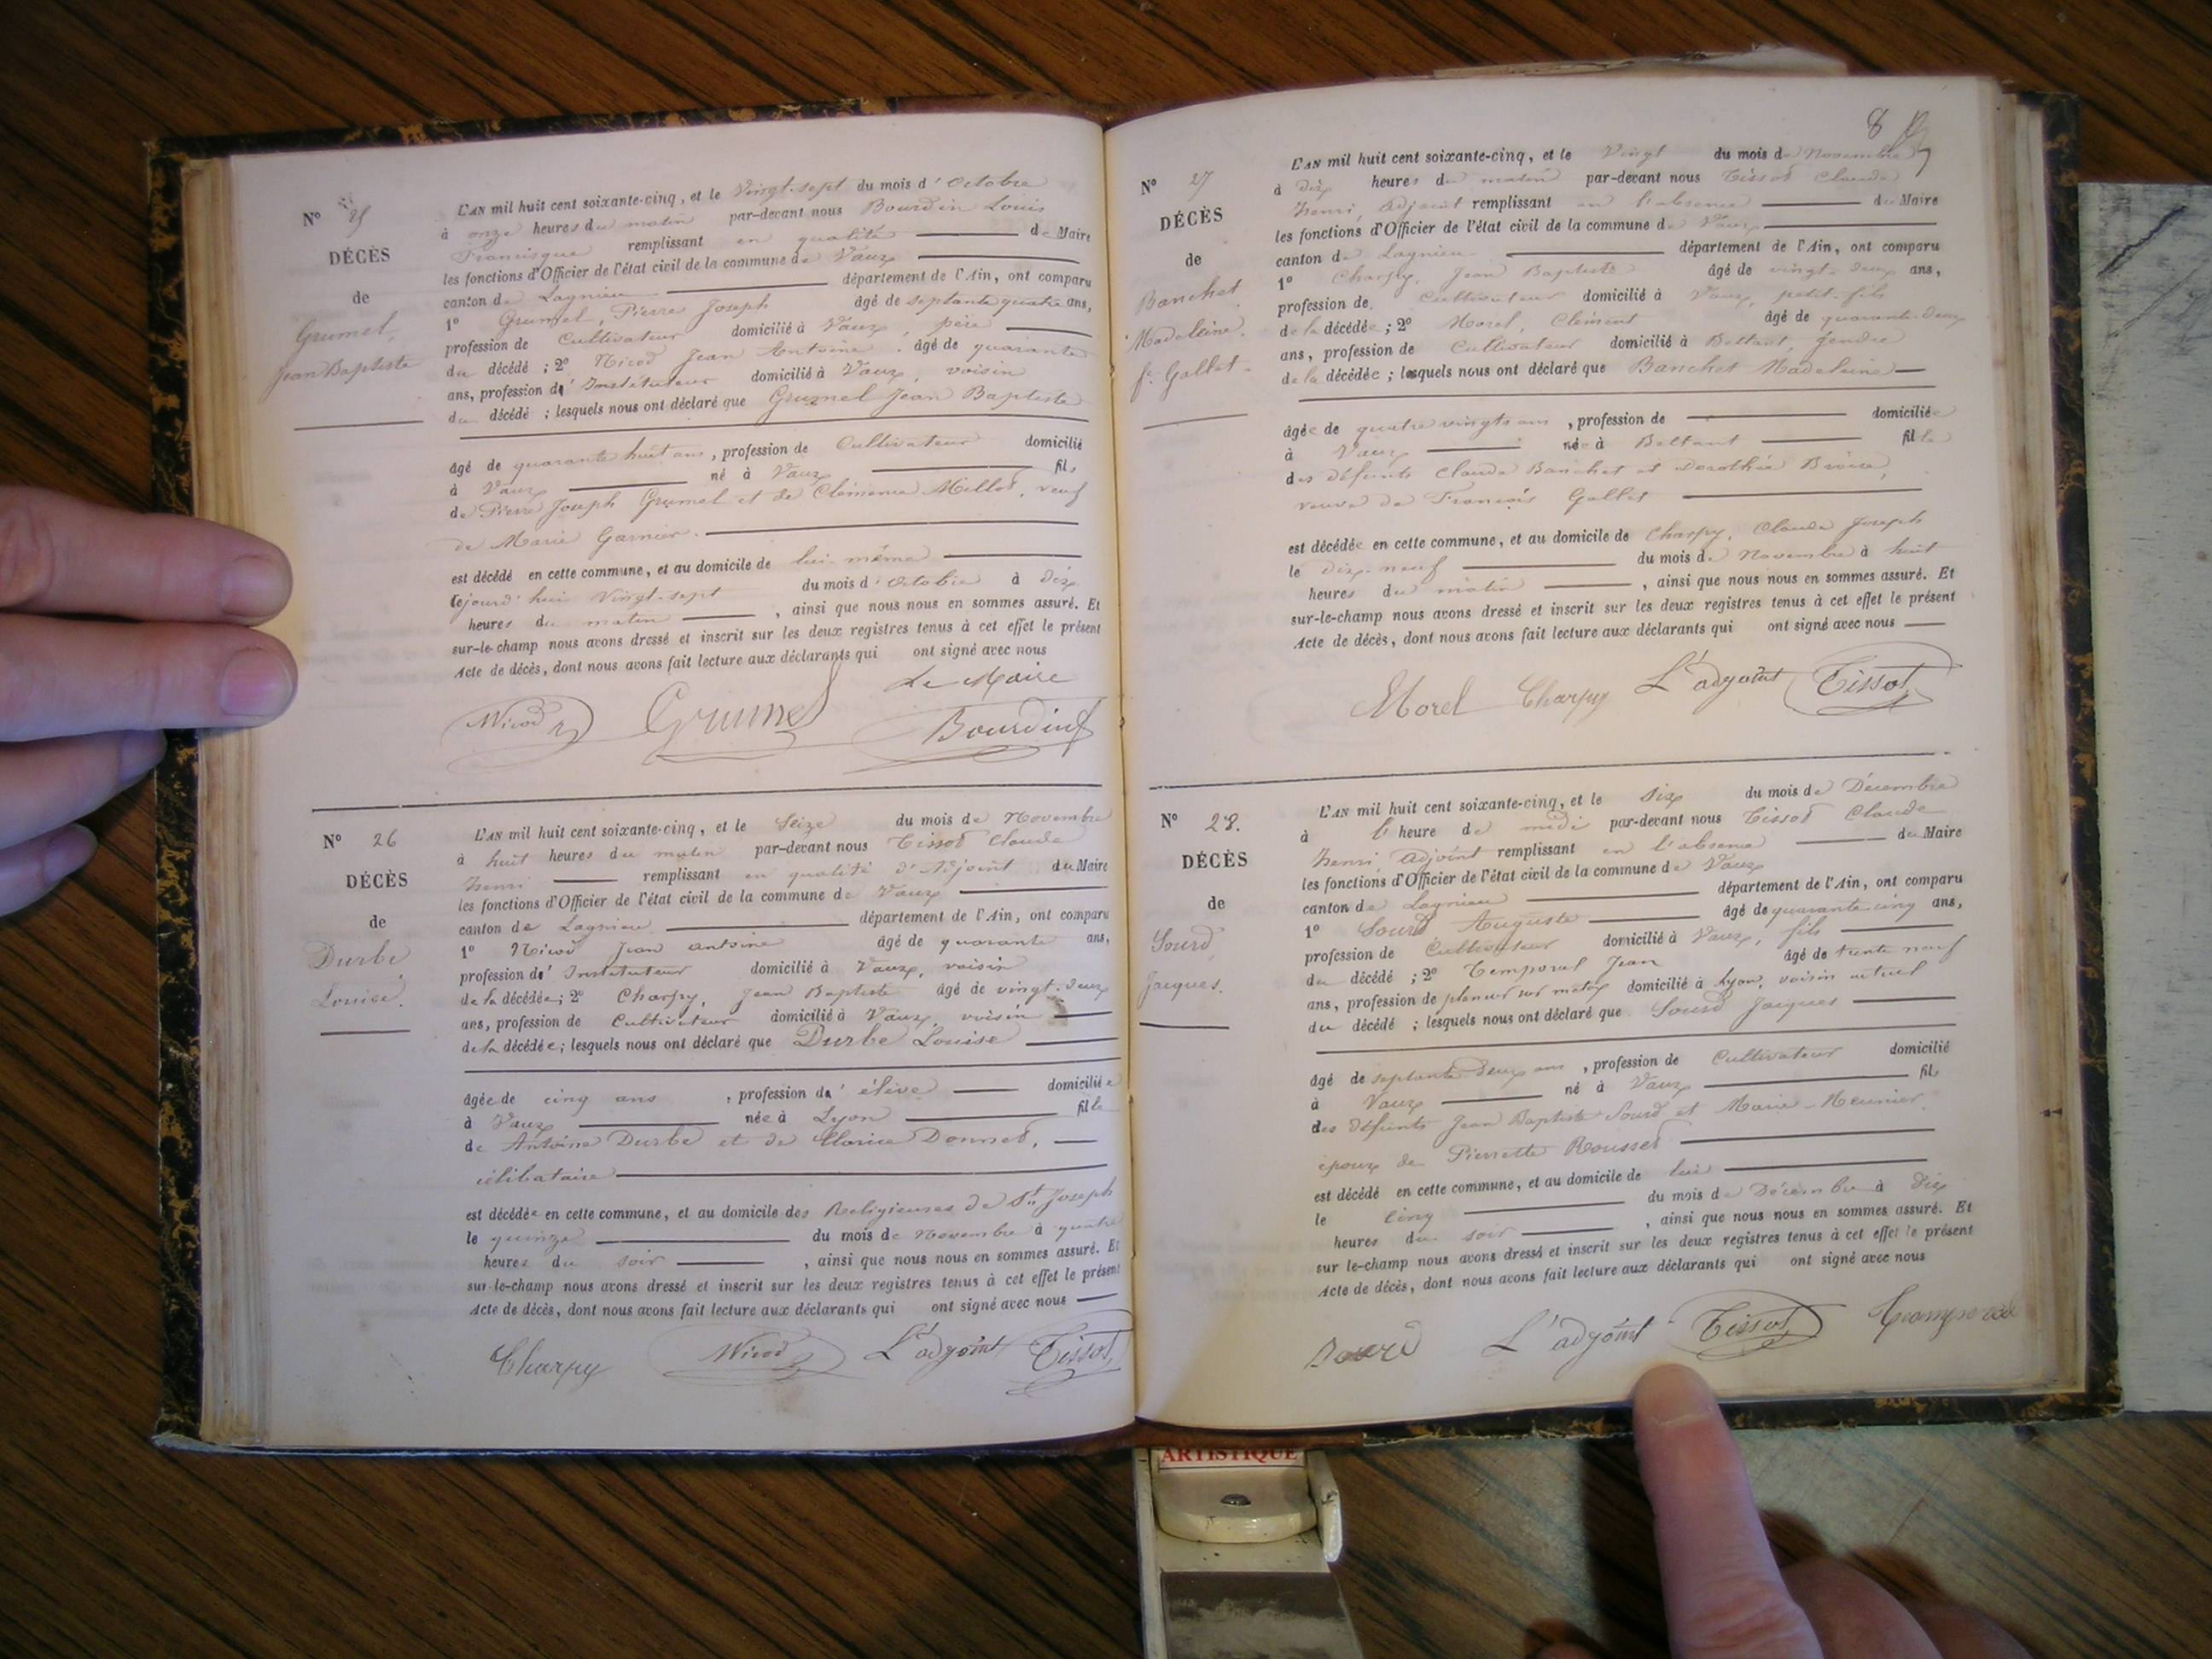 N° 25
DÉCÈS
de
Grumel,
Jean Baptiste
L'AN mil huit cent soixante-cinq, et le Vingt-sept du mois d'Octobre
à onze heures du matin par-devant nous Bourdin Louis
Francisque remplissant en qualité de Maire
les fonctions d'Officier de l'état civil de la commune de Vaux
canton de Lagnieu département de l'Ain, ont comparu
1° Grumel, Pierre Joseph âgé de septante quatre ans,
profession de Cultivateur domicilié à Vaux, père
du décédé ; 2° Nicod Jean Antoine âgé de quarante
ans, profession d'Instituteur domicilié à Vaux, voisin
du décédé ; lesquels nous ont déclaré que Grumel Jean Baptiste
âgé de quarante huit ans, profession de Cultivateur domicilié
à Vaux né à Vaux fils
de Pierre Joseph Grumel et de Clémence Millet, veuf
de Marie Garnier.
est décédé en cette commune, et au domicile de lui-même
cejourd'hui Vingt-sept du mois d'Octobre à dix
heures du matin, ainsi que nous nous en sommes assuré. Et
sur-le-champ nous avons dressé et inscrit sur les deux registres tenus à cet effet le présent
Acte de décès, dont nous avons fait lecture aux déclarants qui ont signé avec nous
Le Maire
Nicod Grumel Bourdin
N° 26
DÉCÈS
de
Durbe
Louise.
L'AN mil huit cent soixante-cinq, et le Seize du mois de Novembre
à huit heures du matin par-devant nous Tissot Claude
Henri remplissant en qualité d'Adjoint du Maire
les fonctions d'Officier de l'état civil de la commune de Vaux
canton de Lagnieu département de l'Ain, ont comparu
1° Nicod Jean antoine âgé de quarante ans,
profession d'Instituteur domicilié à Vaux, voisin
de la décédée; 2° Charpy, Jean Baptiste âgé de vingt-deux
ans, profession de Cultivateur domicilié à Vaux, voisin
de la décédée; lesquels nous ont déclaré que Durbe Louise
âgée de cinq ans, profession d'élève domiciliée
à Vaux née à Lyon fille
de Antoine Durbe et de Clarice Donnet,
célibataire
est décédée en cette commune, et au domicile des Religieuses de St. Joseph
le quinze du mois de Novembre à quatre
heures du soir, ainsi que nous nous en sommes assuré. Et
sur-le-champ nous avons dressé et inscrit sur les deux registres tenus à cet effet le présent
Acte de décès, dont nous avons fait lecture aux déclarants qui ont signé avec nous
Charpy Nicod L'adjoint Tissot
8
N° 27
DÉCÈS
de
Banchet
Madeleine.
fe Gallet
L'AN mil huit cent soixante-cinq, et le Vingt du mois de Novembre
à dix heures du matin par-devant nous Tissot Claude
Henri, Adjoint remplissant en l'absence du Maire
les fonctions d'Officier de l'état civil de la commune de Vaux
canton de Lagnieu département de l'Ain, ont comparu
1° Charpy, Jean Baptiste âgé de vingt-deux ans,
profession de Cultivateur domicilié à Vaux, petit-fils
de la décédée ; 2° Morel, Clément âgé de quarante-deux
ans, profession de Cultivateur domicilié à Bettant, gendre
de la décédée ; lesquels nous ont déclaré que Banchet Madeleine
âgée de quatre vingts ans, profession de domiciliée
à Vaux née à Bettant fille
des défunts Claude Banchet et Dorothée
veuve de François Gallet
est décédée en cette commune, et au domicile de Charpy, Claude Joseph
le dix-neuf du mois de Novembre à huit
heures du matin, ainsi que nous nous en sommes assuré. Et
sur-le-champ nous avons dressé et inscrit sur les deux registres tenus à cet effet le présent
Acte de décès, dont nous avons fait lecture aux déclarants qui ont signé avec nous
Morel Charpy L'adjoint Tissot
N° 28.
DÉCÈS
de
Sourd,
Jacques.
L'AN mil huit cent soixante-cinq, et le Six du mois de Décembre
à l'heure de midi par-devant nous Tissot Claude
Henri Adjoint remplissant en l'absence du Maire
les fonctions d'Officier de l'état civil de la commune de Vaux
canton de Lagnieu département de l'Ain, ont comparu
1° Sourd Auguste âgé de quarante cinq ans,
profession de Cultivateur domicilié à Vaux, fils
du décédé ; 2° Temporal Jean âgé de trente neuf
ans, profession de planeur sur métaux domicilié à Lyon, voisin actuel
du décédé ; lesquels nous ont déclaré que Sourd Jacques
âgé de septante-deux ans, profession de Cultivateur domicilié
à Vaux né à Vaux fils
des défunts Jean Baptiste Sourd et Marie Meunier,
époux de Pierrette Rousset
est décédé en cette commune, et au domicile de lui
le Cinq du mois de Décembre à dix
heures du soir, ainsi que nous nous en sommes assuré. Et
sur le-champ nous avons dressé et inscrit sur les deux registres tenus à cet effet le présent
Acte de décès, dont nous avons fait lecture aux déclarants qui ont signé avec nous
Sourd L'adjoint Tissot Temporal
ARTISTIQUE